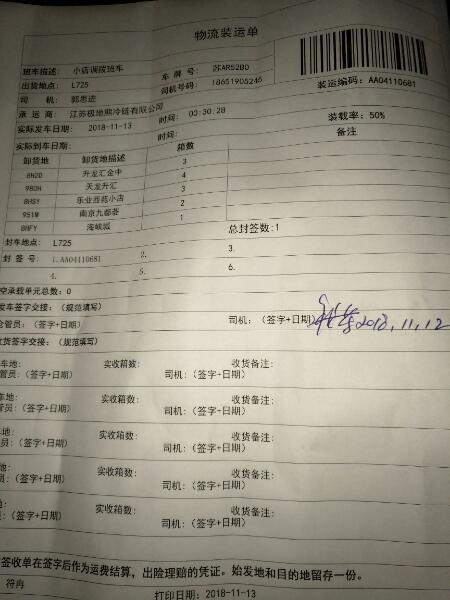 物流装运单
班车描述: 小店调拨班车 车 牌 号: 苏AR52B0
出货地点: L725 司机号码: 18651905245
司 机: 郭忠进 装运编码: AA04110681
承 运 商: 江苏极地熊冷链有限公司
实际发车日期: 2018-11-13 时间: 00:30:28 装载率: 50%
实际到车日期: 时间: 备注
卸货地 卸货地描述 箱数
8H20 升龙汇金中 3
980H 天龙升汇 4
8HSY 乐业苑苑小店 3
951W 南京九都荟 2
8HFY 海峡城 1
总封签数:1
封车地点: L725
封 签 号: 1.AA04110681 2. 3.
4. 5. 6.
空承载单元总数: 0
发车签字交接: (规范填写)
仓管员: (签字+日期) 司机: (签字+日期) 2018.11.12
收货签字交接: (规范填写)
车地: 实收箱数: 收货备注:
管员: (签字+日期) 司机: (签字+日期)
车地: 实收箱数: 收货备注:
员: (签字+日期) 司机: (签字+日期)
地: 实收箱数: 收货备注:
员: (签字+日期) 司机: (签字+日期)
地: 实收箱数: 收货备注:
: (签字+日期) 司机: (签字+日期)
: 实收箱数: 收货备注:
(签字+日期) 司机: (签字+日期)
签收单在签字后作为运费结算，出险理赔的凭证。始发地和目的地留存一份。
符冉 打印日期: 2018-11-13